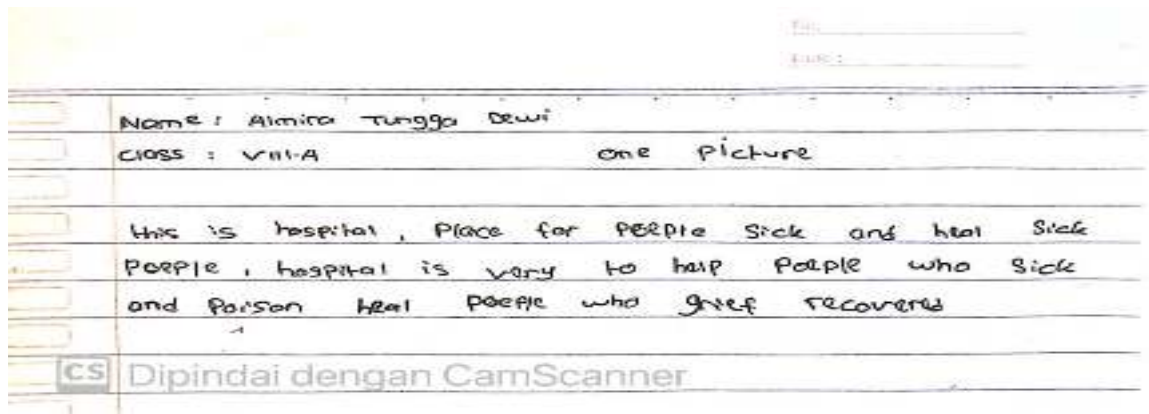 Name : Almira Tungga Dewi
Class : VIII-A one picture
this is hospital, Place for people Sick and heal Sick
People, hospital is very to help people who Sick
and Poison heal people who grief recovered
CS Dipindai dengan CamScanner